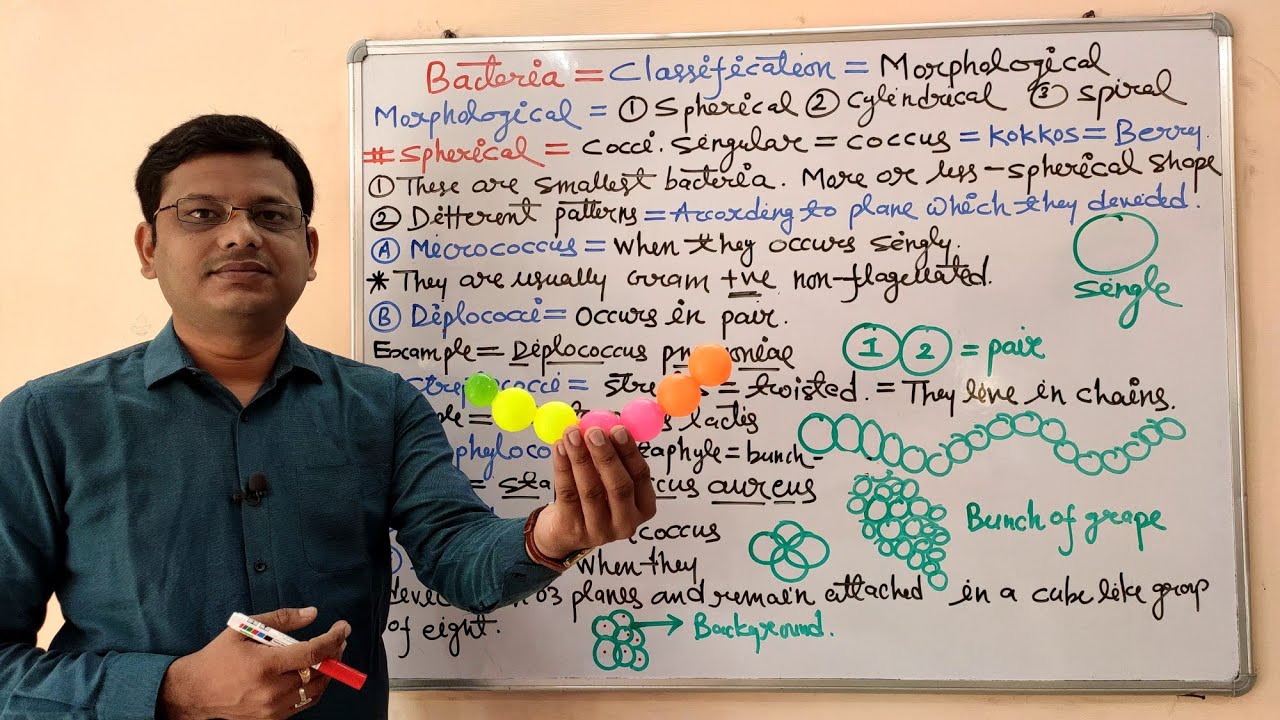 Bacteria = Classification = Morphological
Morphological = ① Spherical ② Cylindrical ③ Spiral
# Spherical = Cocci. Singular = Coccus = Kokkos = Berry.
① These are smallest bacteria. More or less - spherical shape
② Different patterns = According to plane which they devided.
Ⓐ Micrococcus = When they occurs singly.
* They are usually Gram +ve non-flagellated.
single
Ⓑ Diplococci = Occurs in pair.
1 2 = pair
Example = Diplococcus
= twisted. = They live in chains.
lactis
= bunch-
aureus
Bunch of grape
When they
03 planes and remain attached in a cube like group
of eight.
Background.